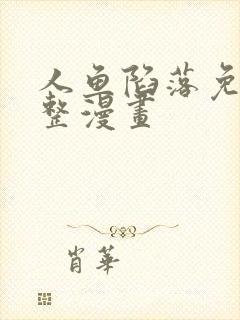 人鱼陷落免
整漫畫
肖華